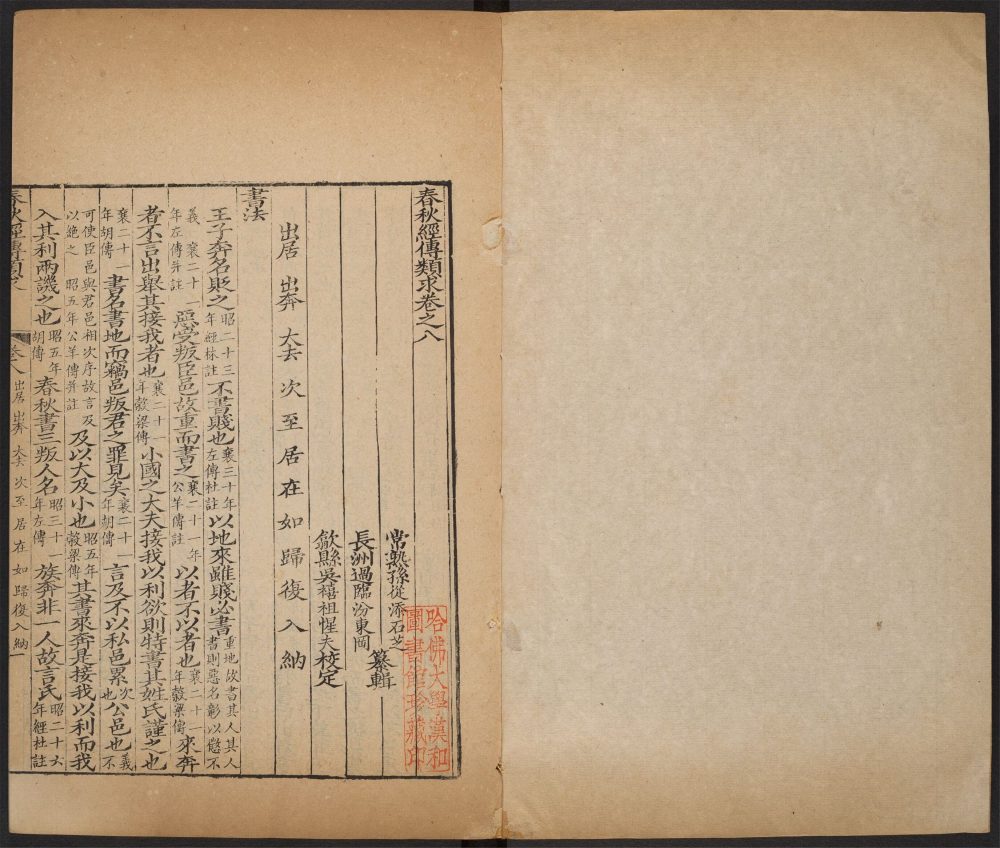 春秋經傳類求卷之八
常熟孫從添石芝
長洲過臨汾東岡
纂輯
歙縣吳禧祖惺夫校定
出居 出奔 大去 次 至 居 在 如 歸 復 入 納
書法
王子奔名貶之昭二十三年經林註不書賤也襄三十年左傳杜註以地來雖賤必書重地故書其人其人書則惡名彰以懲不
義襄二十一年左傳并註惡受叛臣邑故重而書之襄二十一年公羊傳註以者不以者也襄二十一年穀梁傳來奔
者不言出舉其接我者也襄二十一年穀梁傳小國之大夫接我以利欲則特書其姓氏謹之也
襄二十一年胡傳書名書地而竊邑叛君之罪見矣襄二十一年胡傳言及不以私邑累公邑也次也義不
可使臣邑與君邑相次序故言及以絕之昭五年公羊傳并註及以大及小也昭五年穀梁傳其書來奔是接我以利而我
入其利兩譏之也昭五年胡傳春秋書三叛人名昭三十一年左傳族奔非一人故言氏昭二十六年經杜註
春秋經傳類求
卷八 出居 出奔 大去 次 至 居 在 如 歸 復 入 納 一
哈佛大學漢和
圖書館珍藏印